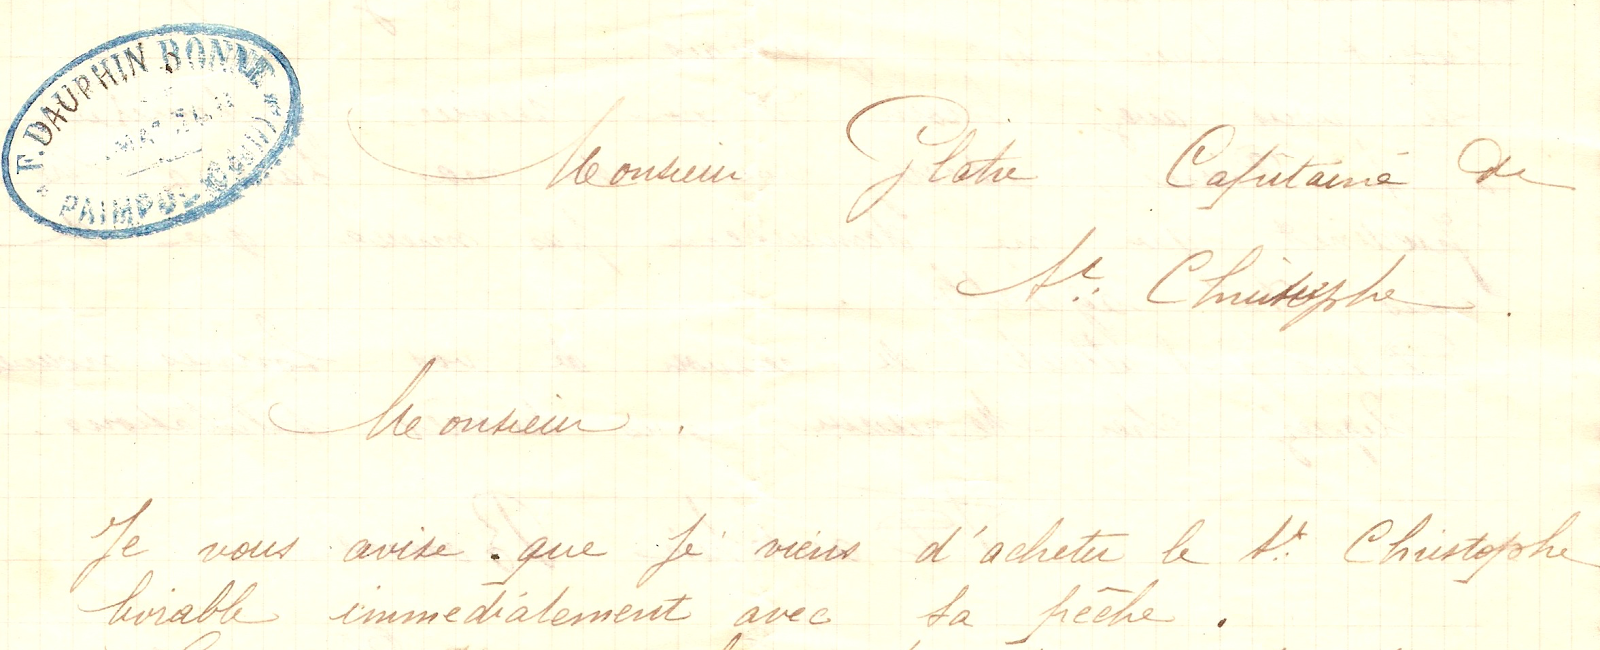 F. DAUPHIN BONNE
PAIMPOL
Monsieur Glatre Capitaine de
St. Christophe.
Monsieur.
Je vous avise que je viens d'acheter le St. Christophe
livrable immédiatement avec sa pêche.